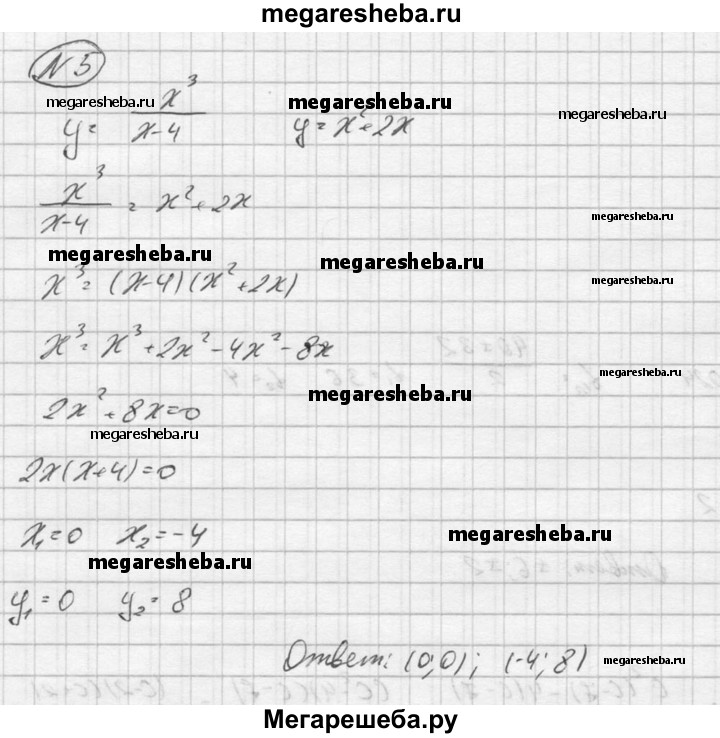 megaresheba.ru
N 5
megaresheba.ru megaresheba.ru megaresheba.ru
y = x³/(x-4) y = x² + 2x
x³/(x-4) = x² + 2x megaresheba.ru
megaresheba.ru megaresheba.ru
x³ = (x-4)(x² + 2x) megaresheba.ru
x³ = x³ + 2x² - 4x² - 8x
megaresheba.ru
2x² + 8x = 0 megaresheba.ru
megaresheba.ru
2x(x+4) = 0
x₁ = 0 x₂ = -4 megaresheba.ru
megaresheba.ru
y₁ = 0 y₂ = 8
Ответ: (0;0); (-4; 8) megaresheba.ru
Мегарешеба.ру